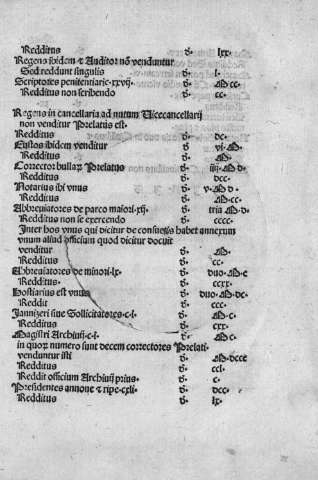 Redditus đ. lxx.
Regens ibidem & Auditor nō venduntur
Sed reddunt singulis đ. l.
Scriptores penitentiarie.xxvij. đ. M cc.
Redditus non scribendo đ. cc.
Regens in cancellaria ad nutum Vicecancellarij
non venditur Prelatus est.
Redditus đ. dc.
Custos ibidem venditur đ. vi. M.
Redditus đ. M.
Corrector bullarꝫ Prelatus đ. iiij. M d.
Redditus đ. dcc.
Notarius ibi vnus đ. v. M d.
Redditus đ. M. cc.
Abbreuiatores de parco maiori.xij. đ. tria M d.
Redditus non se exercendo đ. cccc.
Inter hos vnus qui dicitur de consuetis habet annexum
vnum aliud officium quod dicitur
venditur đ. M c
Redditus đ. cc.
Abbreuiatores de minori.lx. đ. duo. M c
Redditus. đ. ccxx.
Hostiarius est vnus đ. duo. M dc.
Reddit đ. ccc.
Jannizeri siue Sollicitatores.c.l. đ. M c.
Redditus đ. cxx.
Magistri Archiuij.c.l. đ. M c.
in quorꝫ numero sunt decem correctores Prelati
venduntur isti đ. M dccc
Redditus đ. ccl.
Reddit officium Archiuij prius. đ. c.
Presidentes annone & ripe.cxli. đ. dcc.
Redditus đ. lx.